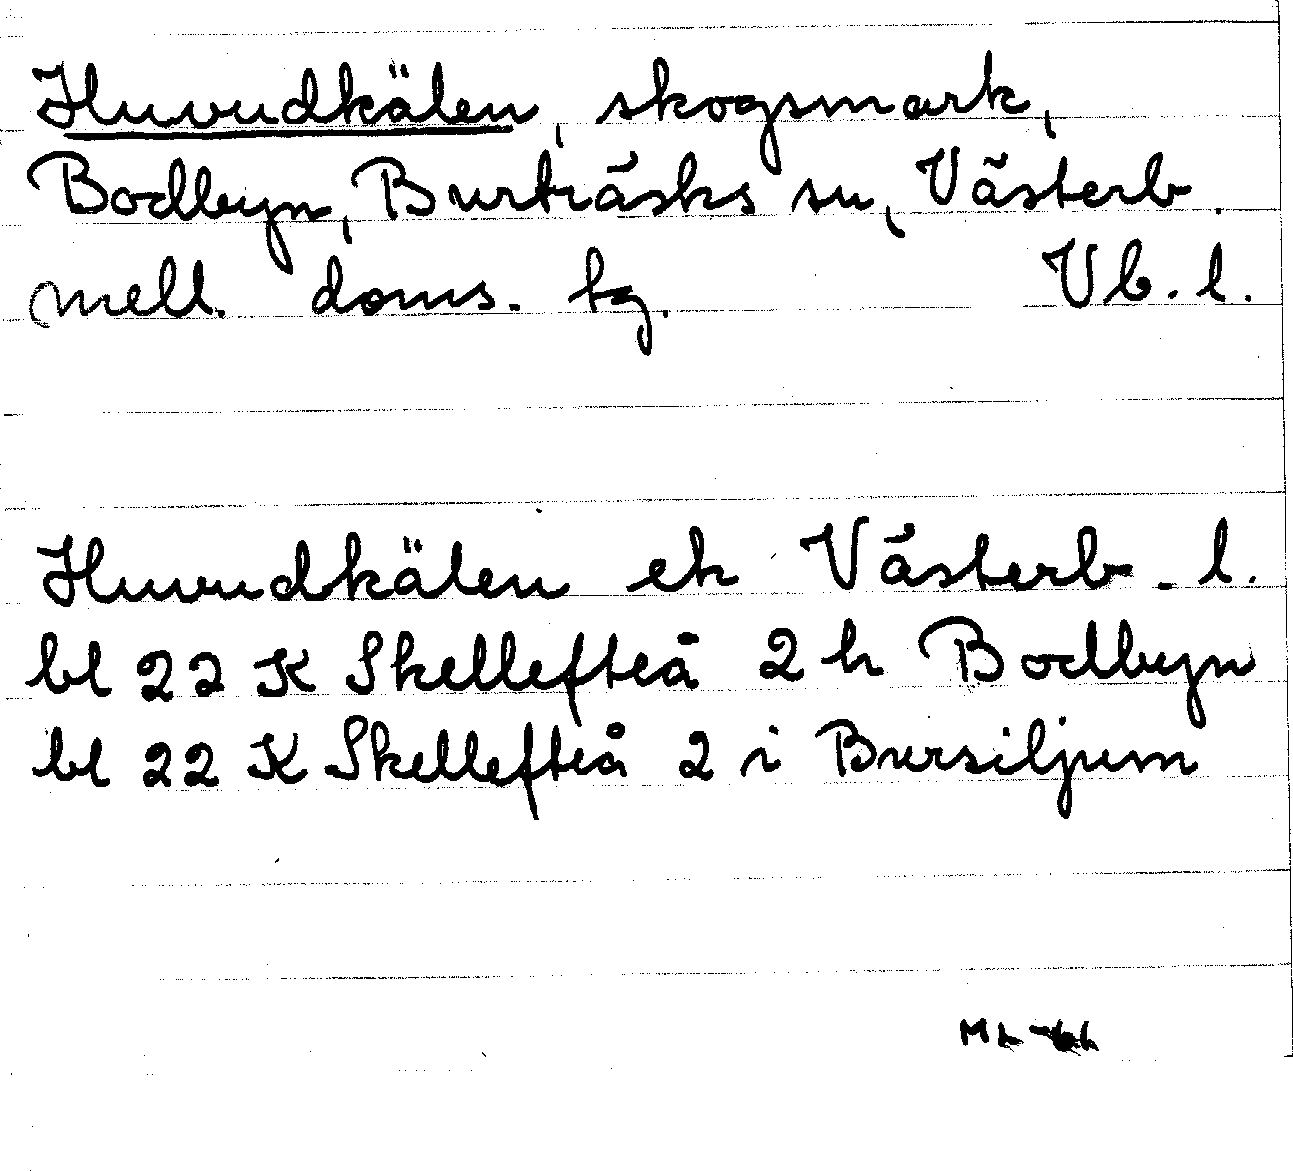 Huvudkälen, skogsmark,
Bodbyn, Burträsks sn, Västerb.
mell. doms. tg. Vb. l.
Huvudkälen ek Västerb. l.
bl 22 K Skellefteå 2 h Bodbyn
bl 22 K Skellefteå 2 i Bursiljum